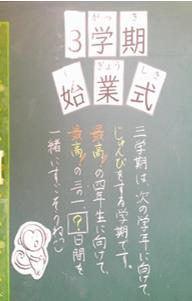 3学期
始業式
三学期は、次の学年に向けて、
じゅんびをする学期です。
最高!の四年生に向けて、
最高!の三の一、?日間を
一緒にすごそうね。